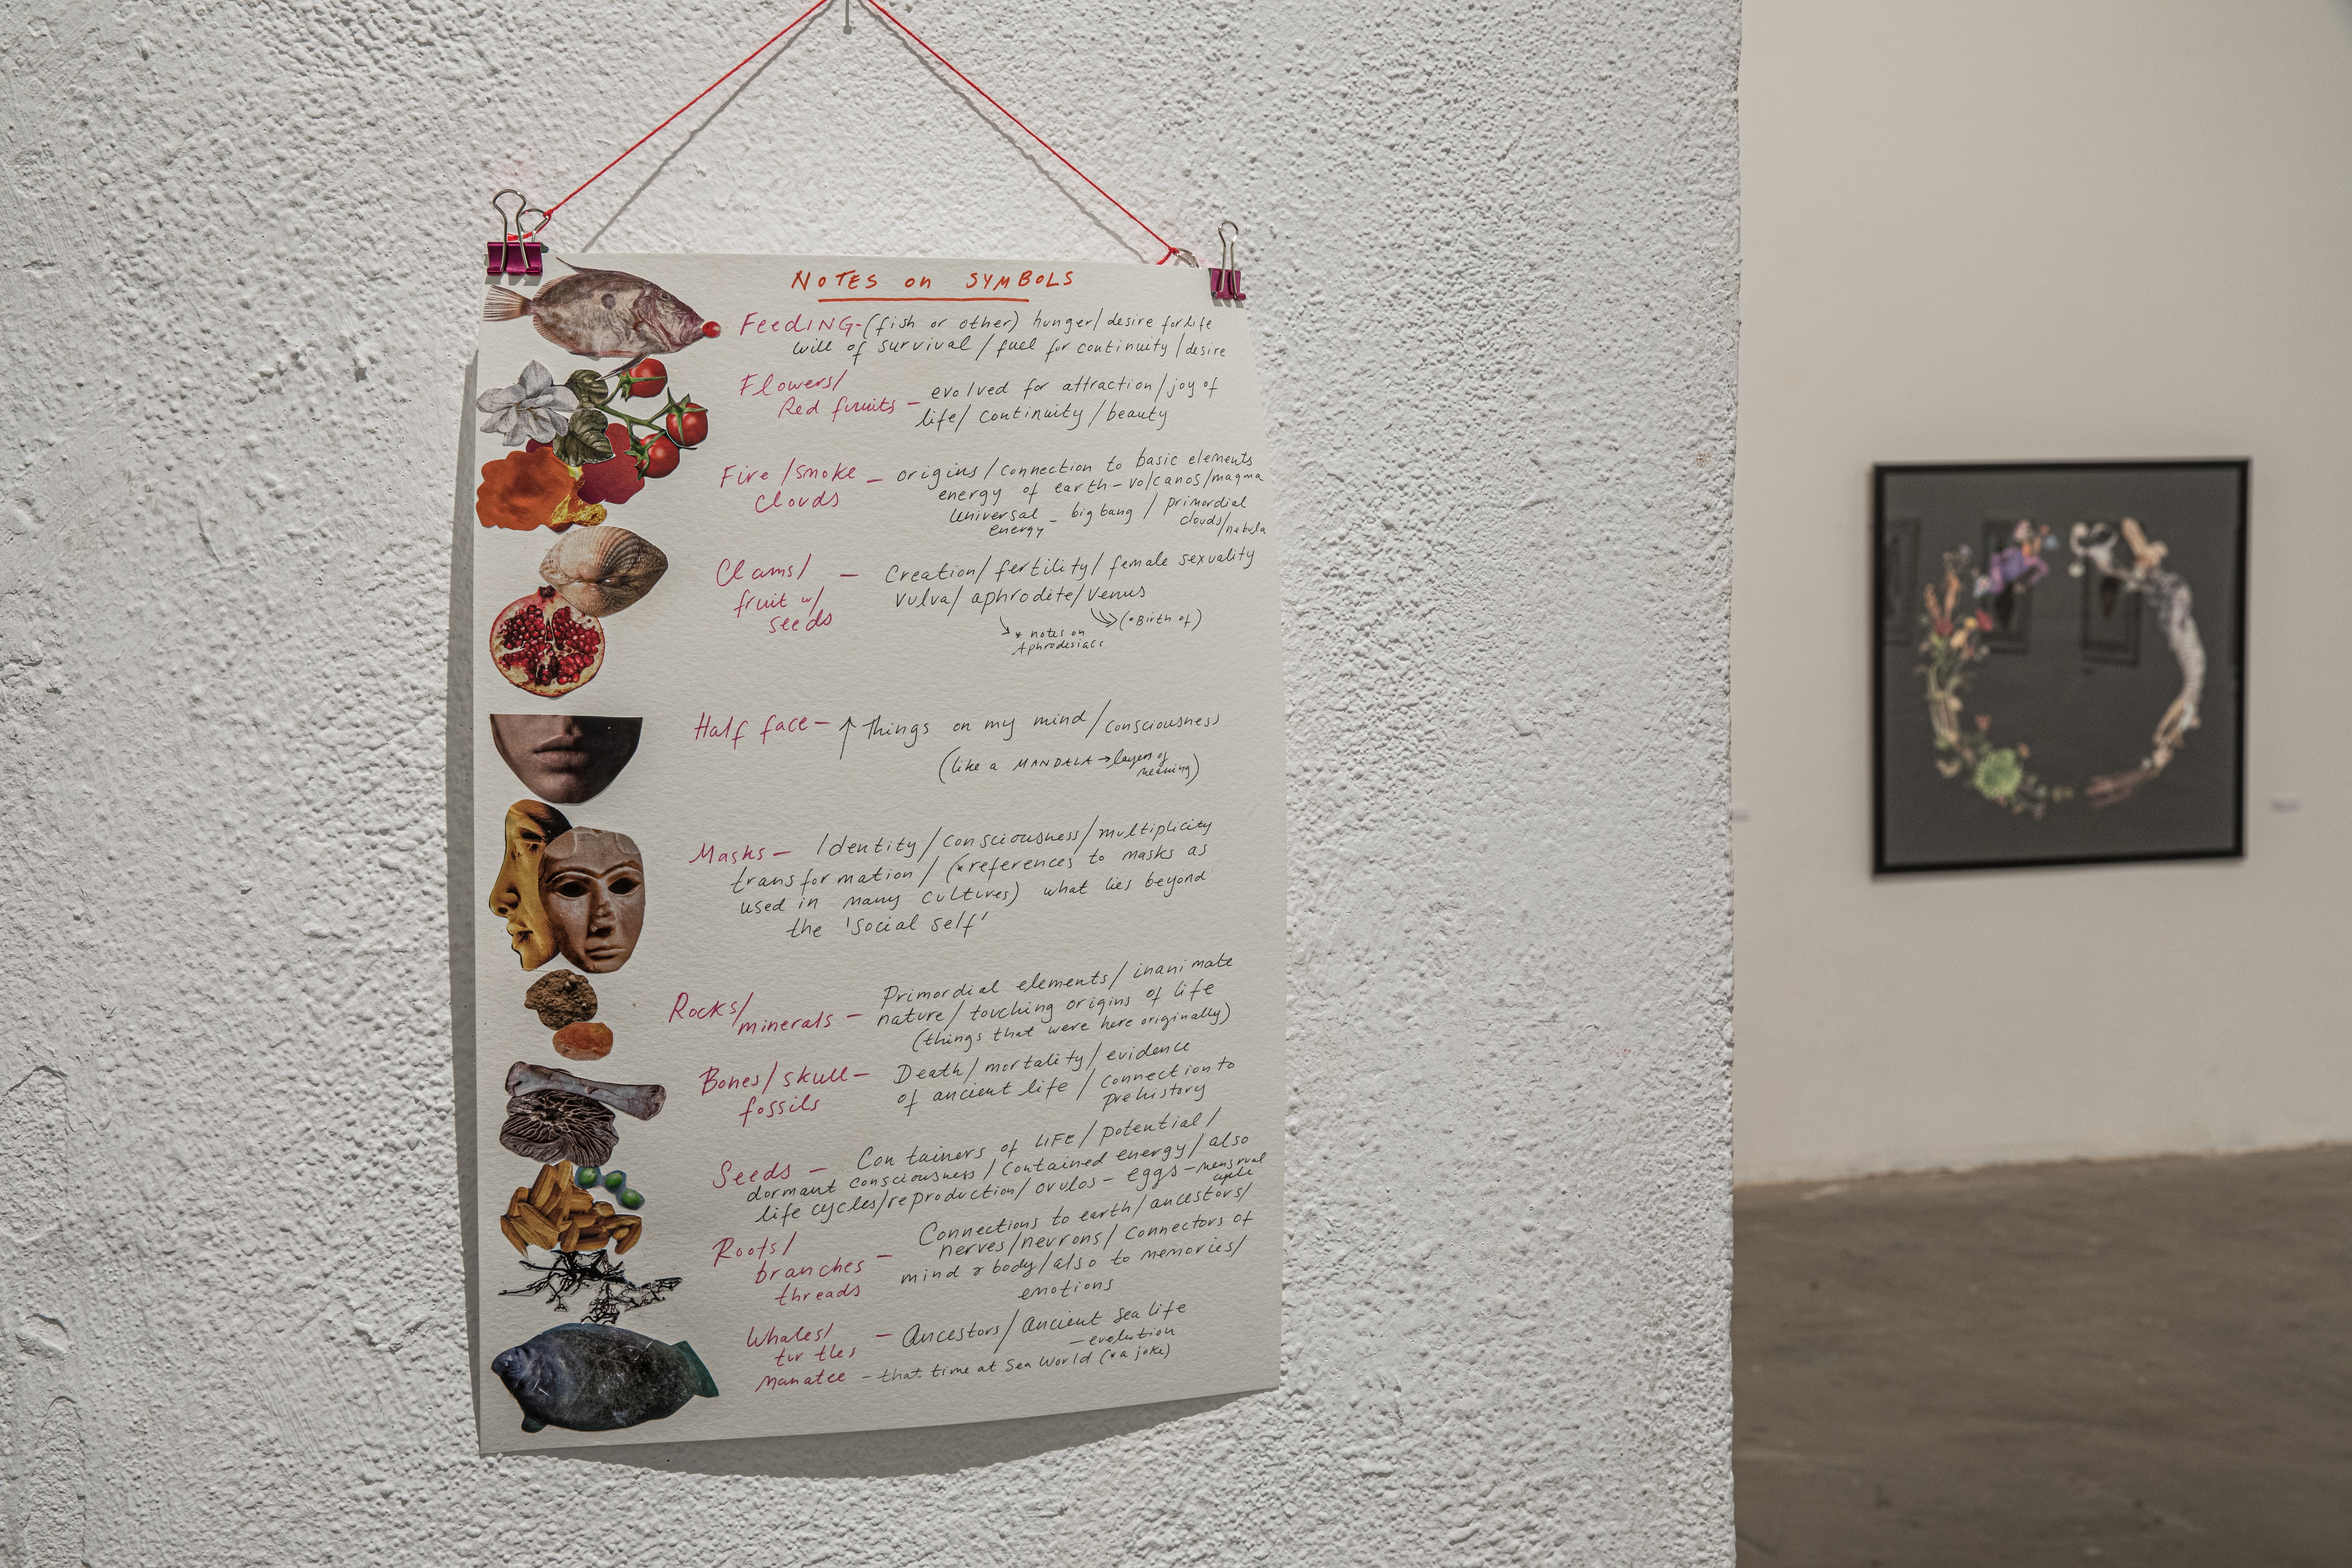 NOTES on SYMBOLS
FeedING - (fish or other) hunger / desire for life
will of survival / fuel for continuity / desire
Flowers/
Red fruits - evolved for attraction / joy of
life / continuity / beauty
Fire / smoke
clouds - origins / connection to basic elements
energy of earth - volcanos / magma
Universal energy - big bang / primordial
clouds / nebula
Clams/
fruit w/
seeds - Creation / fertility / female sexuality
vulva / aphrodite / venus
* notes on
Aphrodesiacs
(*Birth of)
Half face - ↑ Things on my mind / consciousness
(like a MANDALA → layers of
meaning)
Masks - Identity / consciousness / multiplicity
transformation / (*references to masks as
used in many cultures) what lies beyond
the 'social self'
Rocks/
minerals - Primordial elements / inanimate
nature / touching origins of life
(things that were here originally)
Bones / skull -
fossils Death / mortality / evidence
of ancient life / connection to
prehistory
Seeds - Containers of LIFE / potential /
dormant consciousness / contained energy / also
life cycles / reproduction / ovulos - eggs - menstrual
cycle
Roots/
branches
threads - Connections to earth / ancestors /
nerves / neurons / connectors of
mind & body / also to memories /
emotions
Whales/
turtles - Ancestors / ancient sea life
- evolution
manatee - that time at Sea World (*a joke)